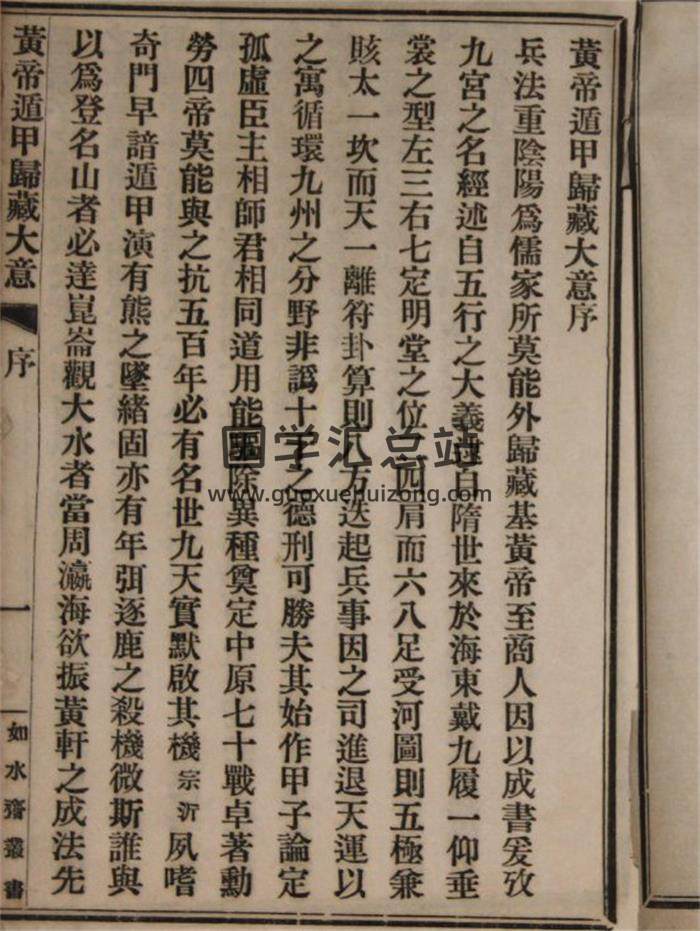 黃帝遁甲歸藏大意序
兵法重陰陽爲儒家所莫能外歸藏基黃帝至商人因以成書爰攷
九宮之名經述自五行之大義遺自隋世來於海東戴九履一仰垂
裳之型左三右七定明堂之位二四肩而六八足受河圖則五極兼
賅太一坎而天一離符卦算則八方迭起兵事因之司進退天運以
之寓循環九州之分野非譌十字之德刑可勝夫其始作甲子論定
孤虛臣主相師君相同道用能驅除異種奠定中原七十戰卓著勳
勞四帝莫能與之抗五百年必有名世九天實默啟其機宗沂夙嗜
奇門早諳遁甲演有熊之墜緒固亦有年弭逐鹿之殺機微斯誰與
以爲登名山者必達崑崙觀大水者當周瀛海欲振黃軒之成法先
黃帝遁甲歸藏大意 序 一 如水齋叢書
国学汇总站
www.guoxuehuizong.com